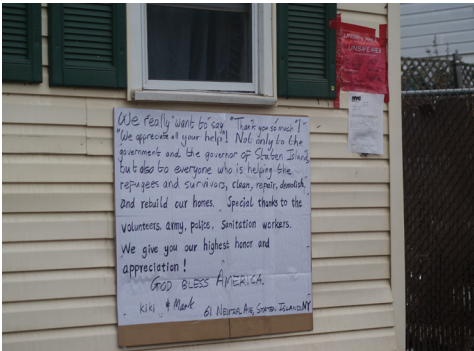 We really want to say "Thank you so much"!
"We appreciate all your help"! Not only to the
government and the governor of Staten Island,
but also to everyone who is helping the
refugees and survivors, clean, repair, demolish,
and rebuild our homes. Special thanks to the
volunteers, army, police, sanitation workers.
We give you our highest honor and
appreciation!
GOD BLESS AMERICA.
Kiki & Mark
61 Neutral Ave, Staten Island, NY
UNSAFE AREA
NYC